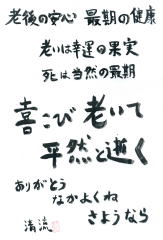 老後の安心 最期の健康
老いは幸運の果実
死は当然の最期
喜こび老いて
平然と逝く
ありがとう
なかよくね
さようなら
清流